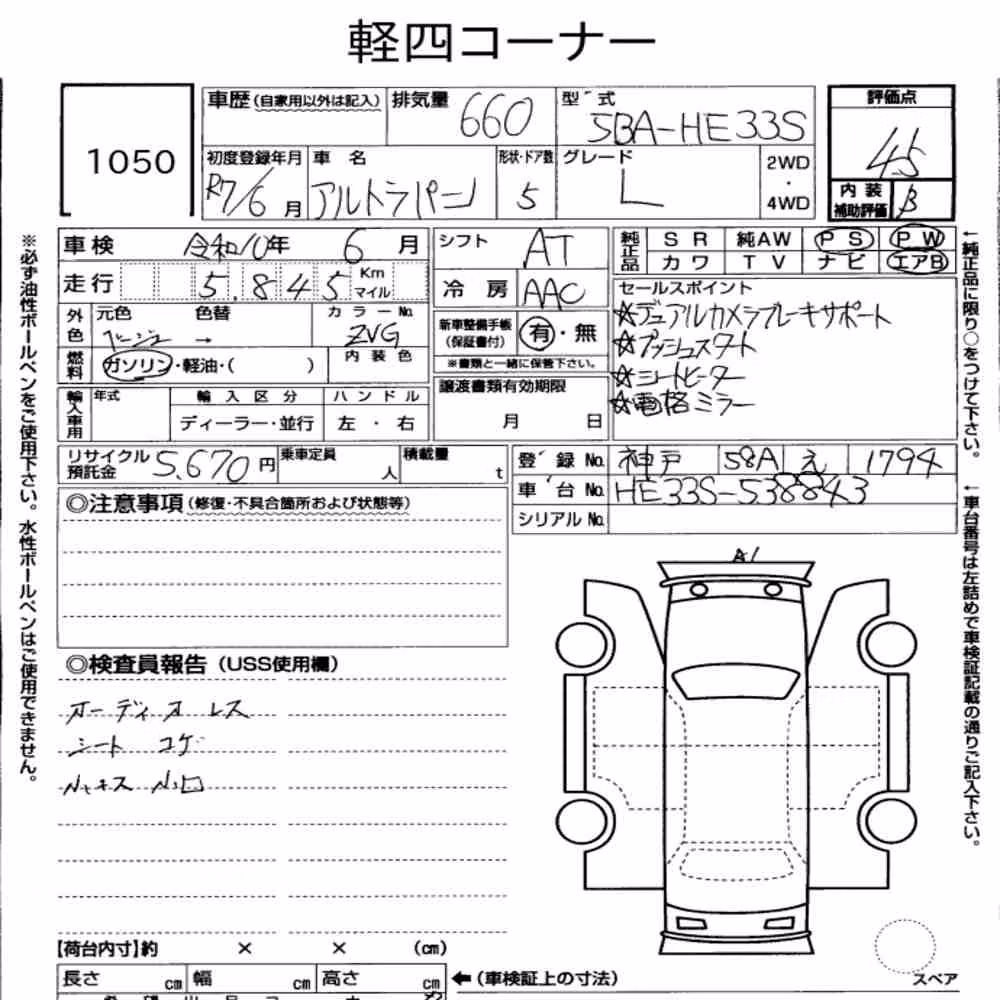 軽四コーナー
1050
車歴(自家用以外は記入) 排気量 660 型式 5BA-HE33S 評価点 4.5
初度登録年月 R7/6月 車名 アルトラパン 形状・ドア数 5 グレード L 2WD・4WD 内装補助評価 B
車検 令和10年 6月 シフト AT 純正品 SR 純AW PS PW
カワ TV ナビ エアB
走行 5,845 Km マイル 冷房 AAC
セールスポイント
☆デュアルカメラブレーキサポート
☆プッシュスタート
☆シートヒーター
☆電格ミラー
外色 元色 ベージュ 色替 → カラーNo. ZVG
新車整備手帳(保証書付) 有・無
※書類と一緒に保管下さい。
燃料 ガソリン・軽油・( ) 内装色
譲渡書類有効期限 月 日
輸入車用 年式 輸入区分 ハンドル
ディーラー・並行 左・右
リサイクル預託金 5,670円 乗車定員 人 積載量 t
登録No. 神戸 58A え 1794
車台No. HE33S-538843
シリアルNo.
◎注意事項(修復・不具合箇所および状態等)
◎検査員報告(USS使用欄)
オーディオレス
シート コゲ
A1
【荷台内寸】約 × × (cm)
長さ cm 幅 cm 高さ cm ←(車検証上の寸法)
スペア
※必ず油性ボールペンをご使用下さい。水性ボールペンはご使用できません。
←純正品に限り○をつけて下さい。
←車台番号は左詰めで車検証記載の通りご記入下さい。